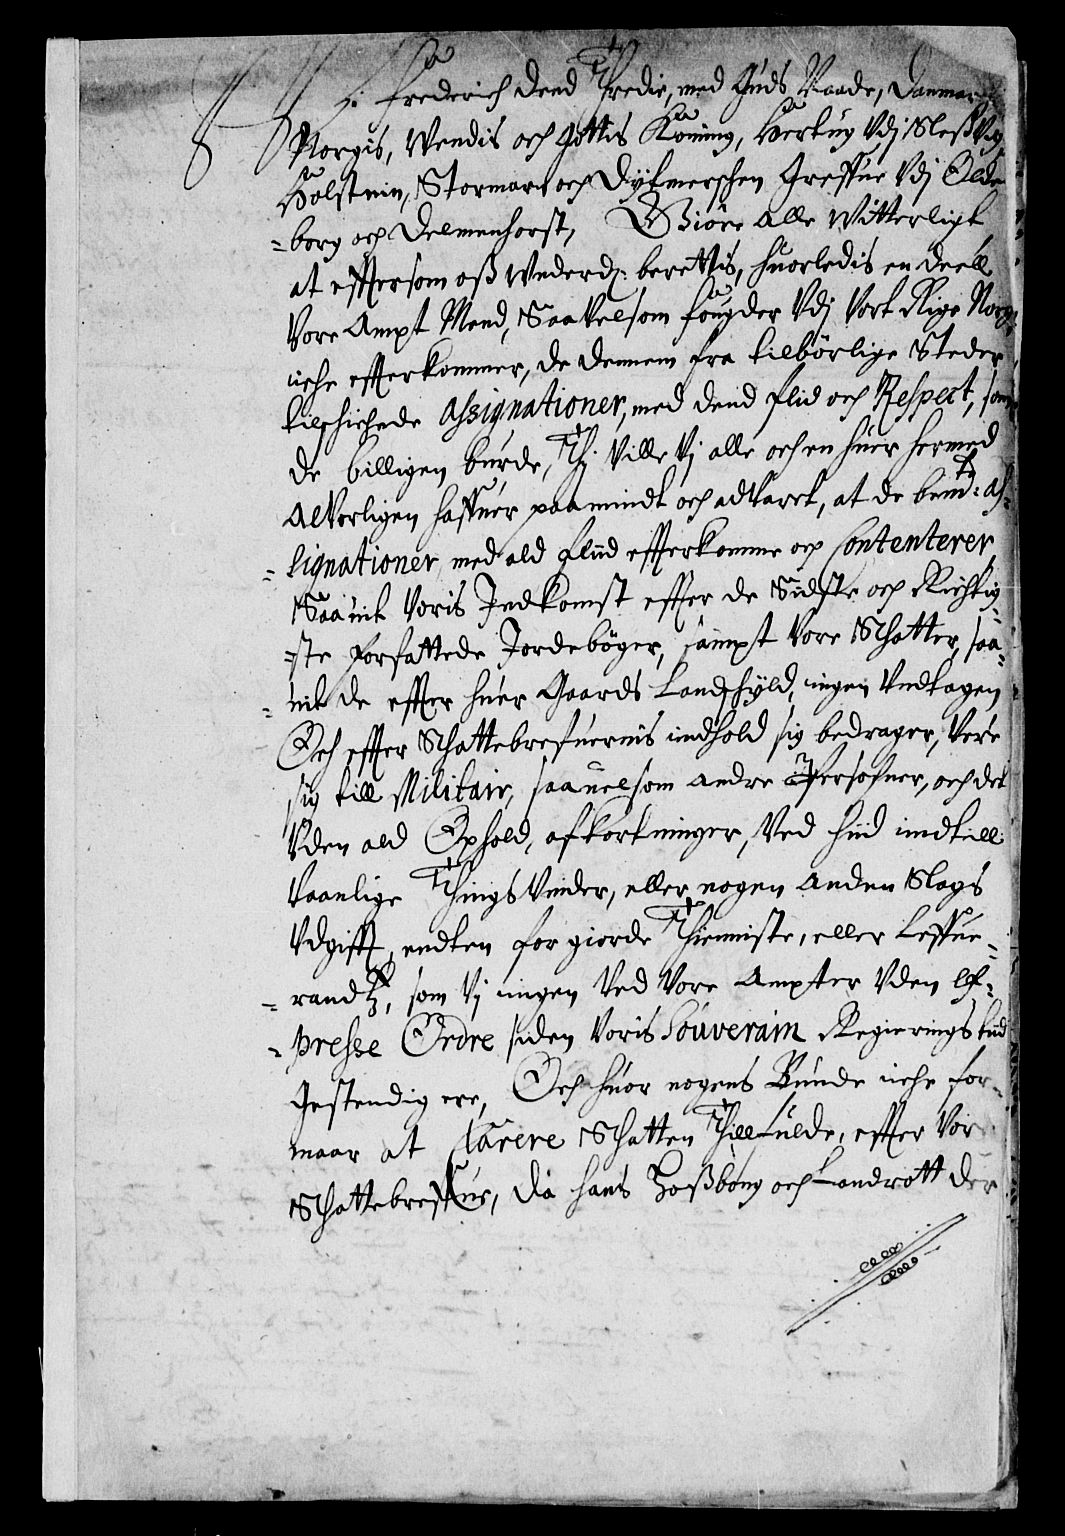 Vi Frederich dend Tredie, med Guds Naade, Danmar
Norgis, Wendis och Gottis Koning, Hertug Udj Sleßvig
Holstein, Stormarn och Dytmerschen Greffue Udj Olden
=borg och Delmenhorst, Giöre Alle Witterligt
at effterssom oß Underd: berettis, huorledis en deell
Vore Ampt Mend, Saavelsom fougder Udj Vort Rige Norge
iche efferkommer, de dennem fra tilbörlige Steder
tilschichede Assignationer, med dend flid och Respect, som
de billigen burde, Thj Ville Vj alle och en huer hermed
Alvorligen haffuer paamindt och advaret, at de bemte: As=
=signationer, med ald fliid efferkomme och Contenterer,
Saauit Voris Indkomst effter de Sidste och Richtig=
=ste forfattede Jordeböger, sampt Vore Schatter, saa=
=uit de effter huer Gaards Landschyld, ingen Undtagen
Och effter Schattebrefuernis indhold sig bedrager, Vere
sig till Militair, saauelsom andre Persohner, och det
Uden ald Ophold, afkortninger, Ved hiid indtill
Vaanlige Things Vinder, eller nogen anden Slags
Udgifft, endten for giorde Thienniste, eller Leffue=
=randtz, som Vj ingen Ved Vore Ampter Uden Ex=
=presse Ordre siden Voris Souverain Regierings tiid
Gestendig ere, Och huor nogens Bunde iche for=
maar at Clarere Schatten Thillfulde, effter Vor
Schattebreffue, da hans Boßbong och Landrott der